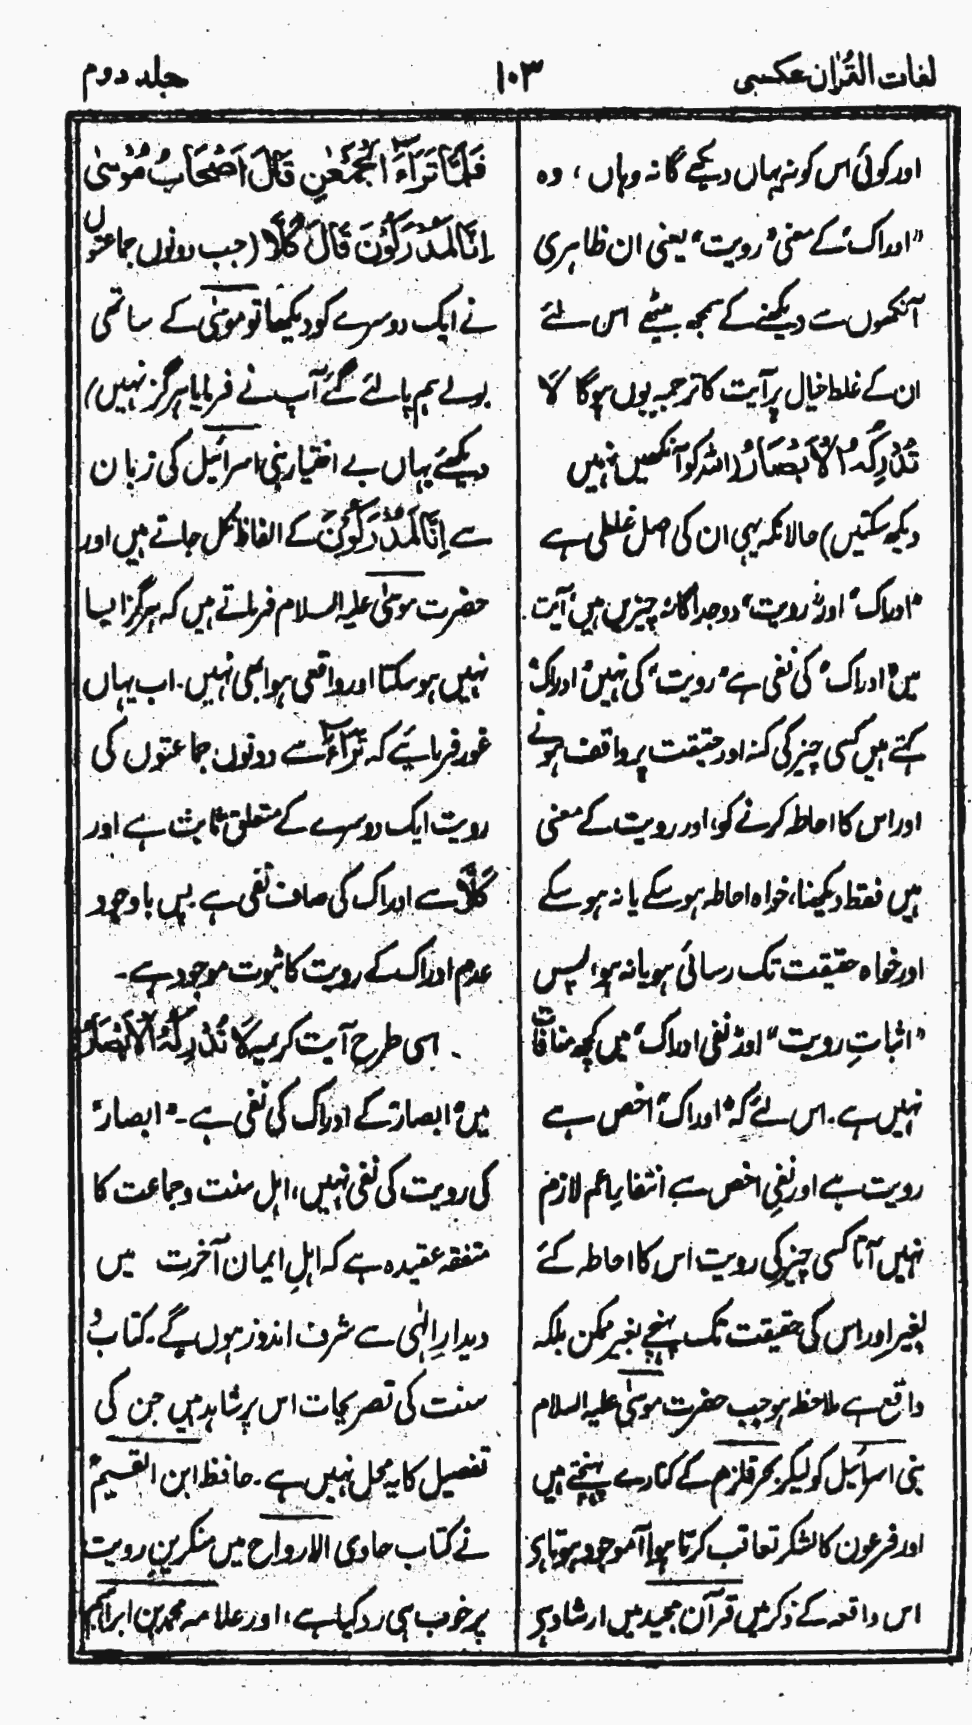 لغات القرآن عکسی
۱۰۳
جلد دوم
اور کوئی اس کو نہ یہاں دیکھے گا نہ وہاں ، وہ
"ادراک" کے معنی "رویت" یعنی ان ظاہری
آنکھوں سے دیکھنے کے سمجھ بیٹھے اس لئے
ان کے غلط خیال پر آیت کا ترجمہ یوں ہوگا لَا
تُدْرِكُهُ الْاَبْصَارُ (اللہ کو آنکھیں نہیں
دیکھ سکتیں) حالانکہ یہی ان کی اصل غلطی ہے
"ادراک" اور "رویت" دو جداگانہ چیزیں ہیں آیت
میں "ادراک" کی نفی ہے "رویت" کی نہیں "ادراک"
کہتے ہیں کسی چیز کی کنہ اور حقیقت پر واقف ہونے
اور اس کا احاطہ کرنے کو، اور رویت کے معنی
ہیں فقط دیکھنا، خواہ احاطہ ہو سکے یا نہ ہو سکے
اور خواہ حقیقت تک رسائی ہو یا نہ ہو، پس
"اثباتِ رویت" اور "نفی ادراک" میں کچھ منافات
نہیں ہے۔ اس لئے کہ "ادراک" اخص ہے
رویت سے اور نفیِ اخص سے انتفاءِ اعم لازم
نہیں آتا کسی چیز کی رویت اس کا احاطہ کئے
بغیر اور اس کی حقیقت تک پہنچے بغیر ممکن بلکہ
واقع ہے ملاحظہ ہو جب حضرت موسیٰ علیہ السلام
بنی اسرائیل کو لیکر بحر قلزم کے کنارے پہنچتے ہیں
اور فرعون کا لشکر تعاقب کرتا ہوا آموجود ہوتا ہے
اس واقعہ کے ذکر میں قرآن مجید میں ارشاد ہے
فَلَمَّا تَرَآءَ الْجَمْعٰنِ قَالَ اَصْحَابُ مُوْسٰى
اِنَّا لَمُدْرَكُوْنَ قَالَ كَلَّا (جب دونوں جماعتوں
نے ایک دوسرے کو دیکھا تو موسیٰ کے ساتھی
بولے ہم پا لئے گئے آپ نے فرمایا ہرگز نہیں)
دیکھئے یہاں بے اختیار بنی اسرائیل کی زبان
سے اِنَّا لَمُدْرَكُوْنَ کے الفاظ نکل جاتے ہیں اور
حضرت موسیٰ علیہ السلام فرماتے ہیں کہ ہرگز ایسا
نہیں ہو سکتا اور واقعی ہوا بھی نہیں۔ اب یہاں
غور فرمایئے کہ تَرَآءَ سے دونوں جماعتوں کی
رویت ایک دوسرے کے متعلق ثابت ہے اور
كَلَّا سے ادراک کی صاف نفی ہے۔ پس باوجود
عدم ادراک کے رویت کا ثبوت موجود ہے۔
اسی طرح آیت کریمہ لَا تُدْرِكُهُ الْاَبْصَارُ
میں "ابصار" کے ادراک کی نفی ہے۔ "ابصار"
کی رویت کی نفی نہیں، اہل سنت و جماعت کا
متفقہ عقیدہ ہے کہ اہلِ ایمان آخرت میں
دیدارِ الٰہی سے شرف اندوز ہوں گے۔ کتاب و
سنت کی تصریحات اس پر شاہد ہیں جن کی
تفصیل کا یہ محل نہیں ہے۔ حافظ ابن القیم
نے کتاب حاوی الارواح میں منکرینِ رویت
پر خوب ہی رد کیا ہے، اور علامہ محمد بن ابراہیم